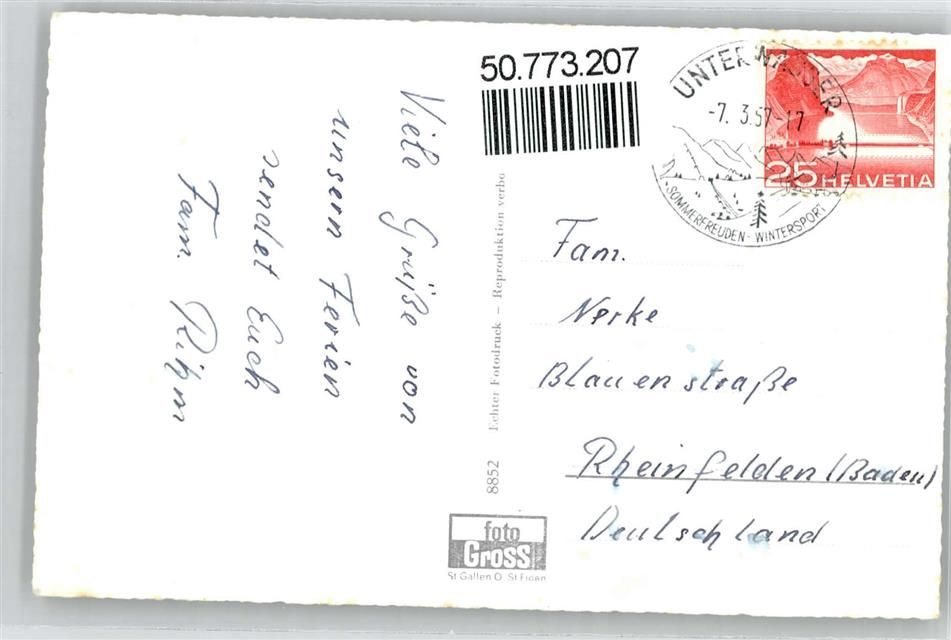 50.773.207
UNTERWASSER
-7. 3.57-17
SOMMERFREUDEN - WINTERSPORT
25 HELVETIA
Viele Grüße von
unsern Ferien
sendet Euch
Fam. Rihm
Echter Fotodruck – Reproduktion verbo
8852
foto
Gross
St Gallen O. St Fiden
Fam.
Nerke
Blauenstraße
Rheinfelden (Baden)
Deutschland